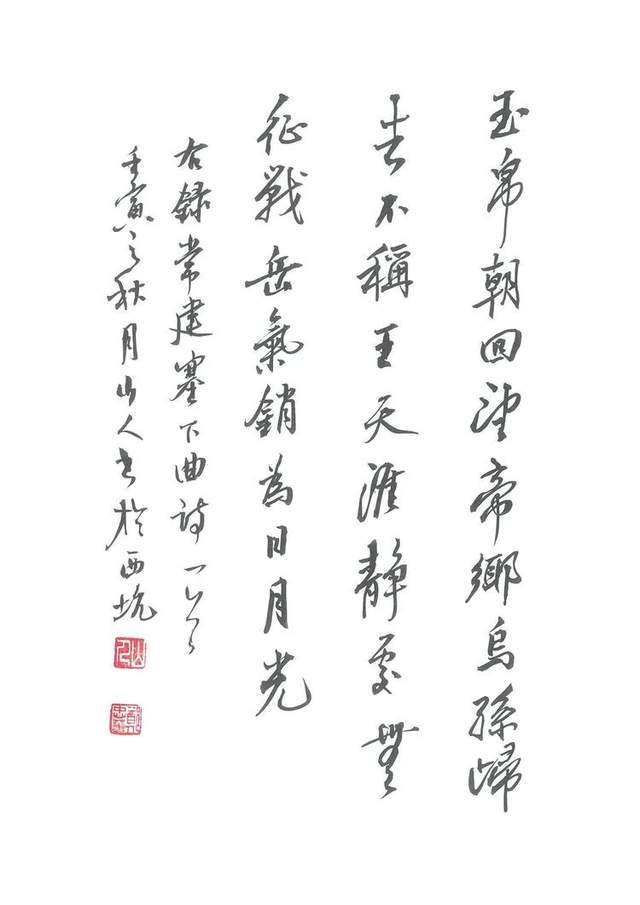 玉帛朝回望帝鄉烏孫歸
去不稱王天涯靜處無
征戰兵氣銷為日月光
右錄常建塞下曲詩一首
壬寅之秋月山人書於西坑